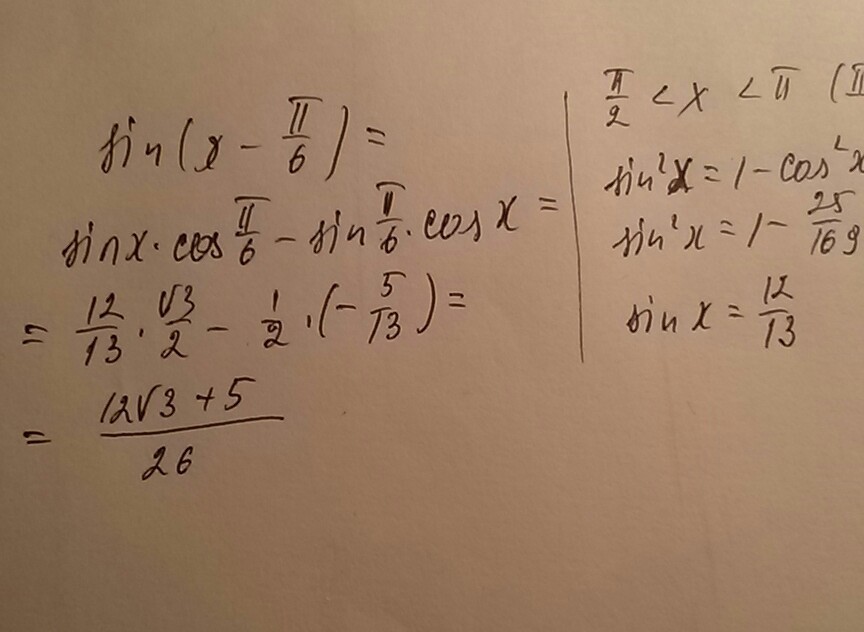 sin(x - π/6) =
sinx · cos π/6 - sin π/6 · cos x =
= 12/13 · √3/2 - 1/2 · (- 5/13) =
= (12√3 + 5)/26
π/2 < x < π (II
sin²x = 1 - cos²x
sin²x = 1 - 25/169
sin x = 12/13